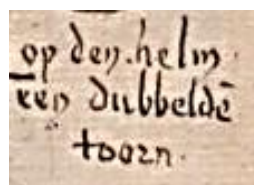 op den. helm.
een dubbeldē
toorn.